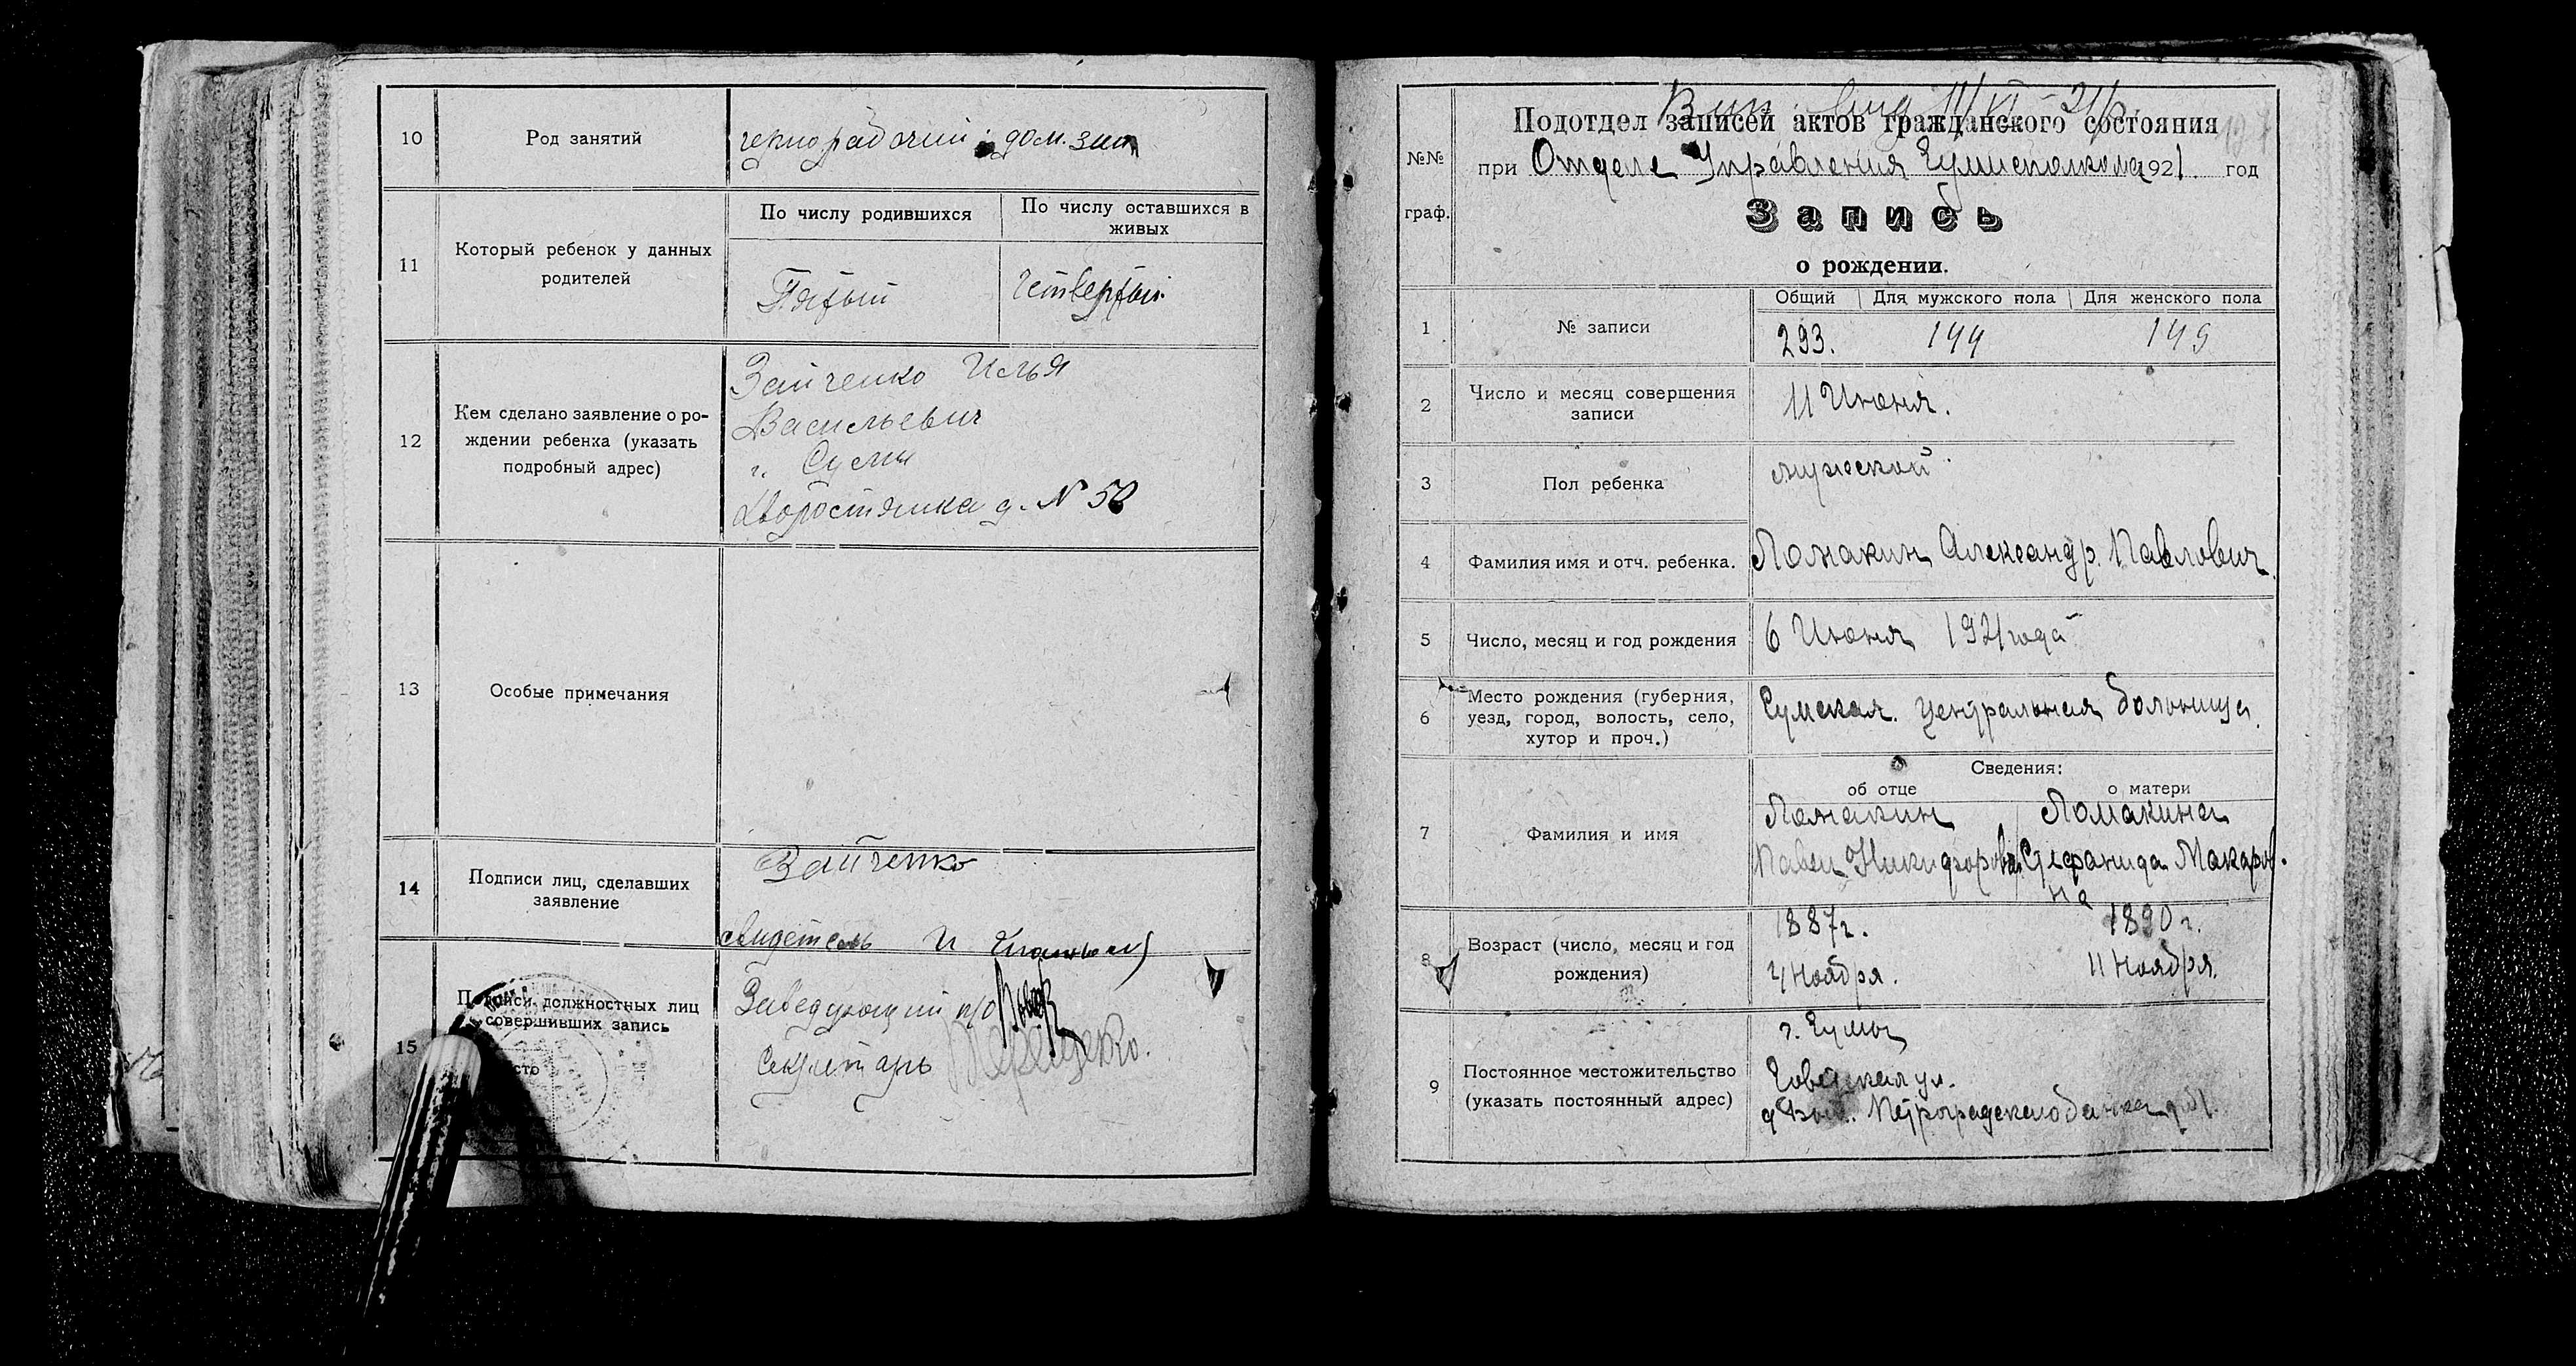 10
Род занятий
чернорабочий; дом. зан
11
Который ребенок у данных
родителей
По числу родившихся
По числу оставшихся в
живых
Пятый
четвертый
12
Кем сделано заявление о ро-
ждении ребенка (указать
подробный адрес)
Зайченко Илья
Васильевич
г. Сумы
д. № 58
13
Особые примечания
14
Подписи лиц, сделавших
заявление
Зайченко
свидетель И
15
Подписи должностных лиц
совершивших запись
Заведующий п/о
Секретарь
№№
граф.
11/VI-21
Подотдел записей актов гражданского состояния
при Отделе Управления Сумисполкома 1921 год
Запись
о рождении.
1
№ записи
Общий
Для мужского пола
Для женского пола
293.
144
149
2
Число и месяц совершения
записи
11 Июня.
3
Пол ребенка
мужской
4
Фамилия имя и отч. ребенка.
Ломакин Александр Павлович
5
Число, месяц и год рождения
6 Июня 1921 года
6
Место рождения (губерния,
уезд, город, волость, село,
хутор и проч.)
Сумская центральная больница.
Сведения:
об отце
о матери
7
Фамилия и имя
Ломакин
Павел Никифоров
Ломакина
Стефанида Макаров-
на
8
Возраст (число, месяц и год
рождения)
1887 г.
4 Ноября.
1890 г.
11 Ноября.
9
Постоянное местожительство
(указать постоянный адрес)
г. Сумы
Советская ул.
Петроградского банка